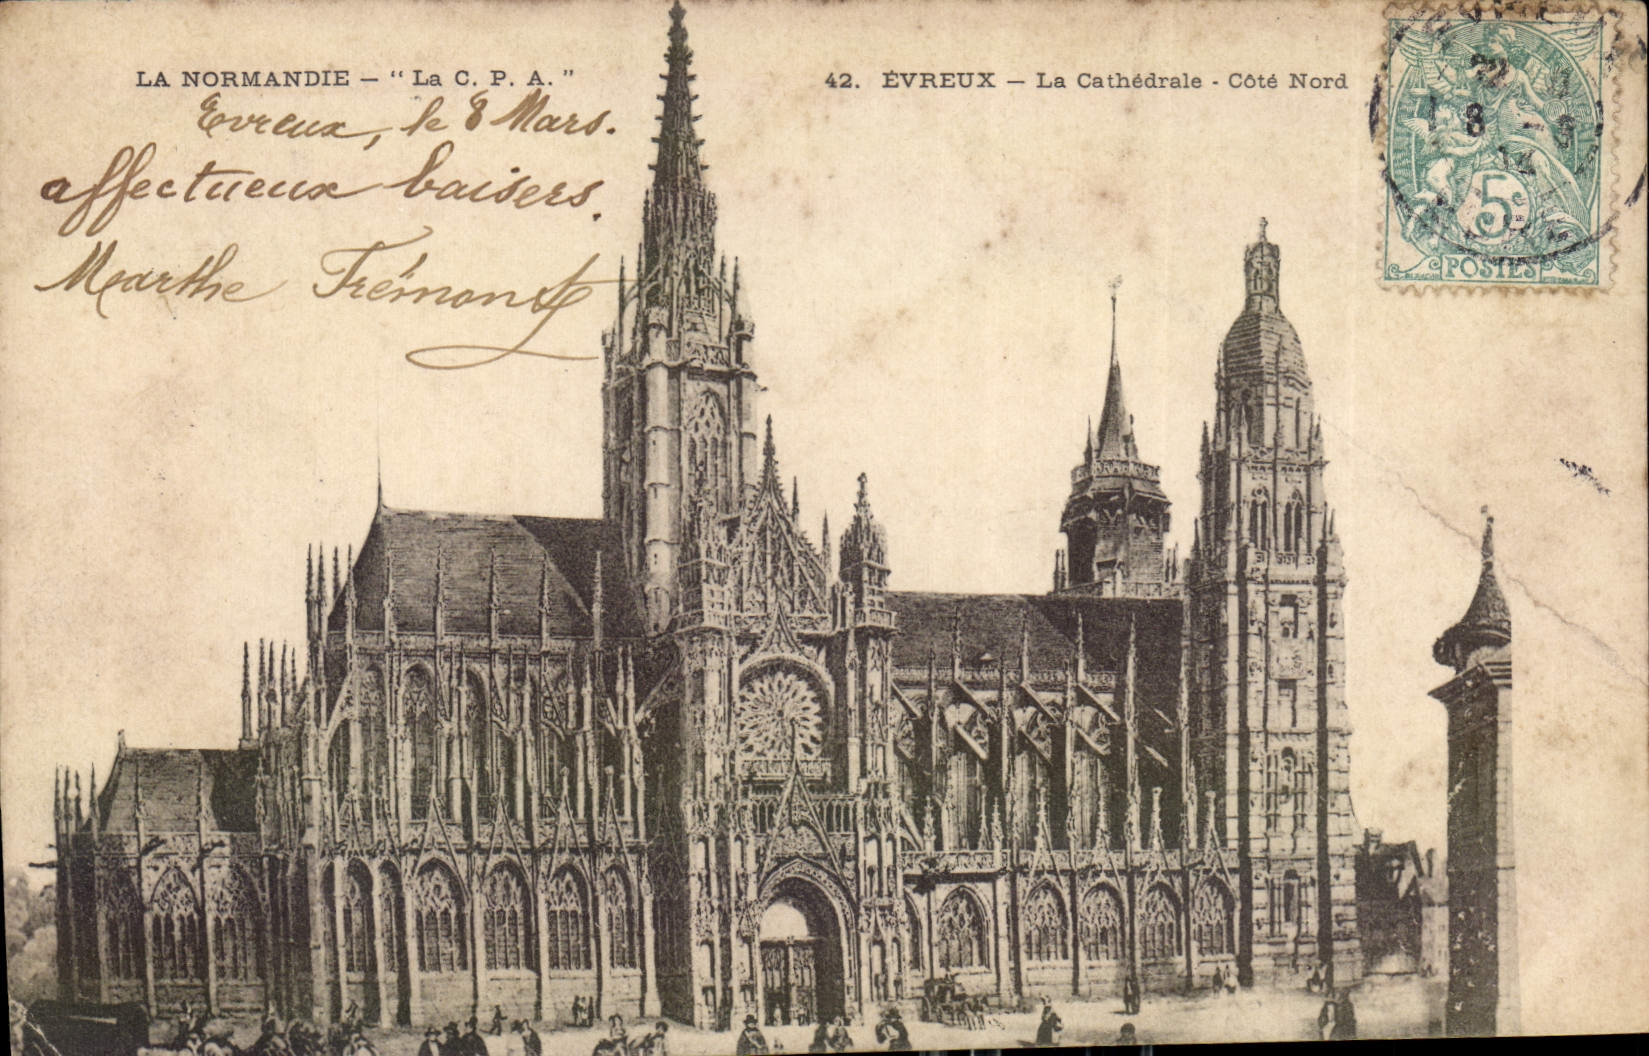 LA NORMANDIE — “ La C. P. A. ”
42. ÉVREUX — La Cathédrale - Côté Nord
Evreux, le 8 Mars.
affectueux baisers.
Marthe Trémont
5
POSTES